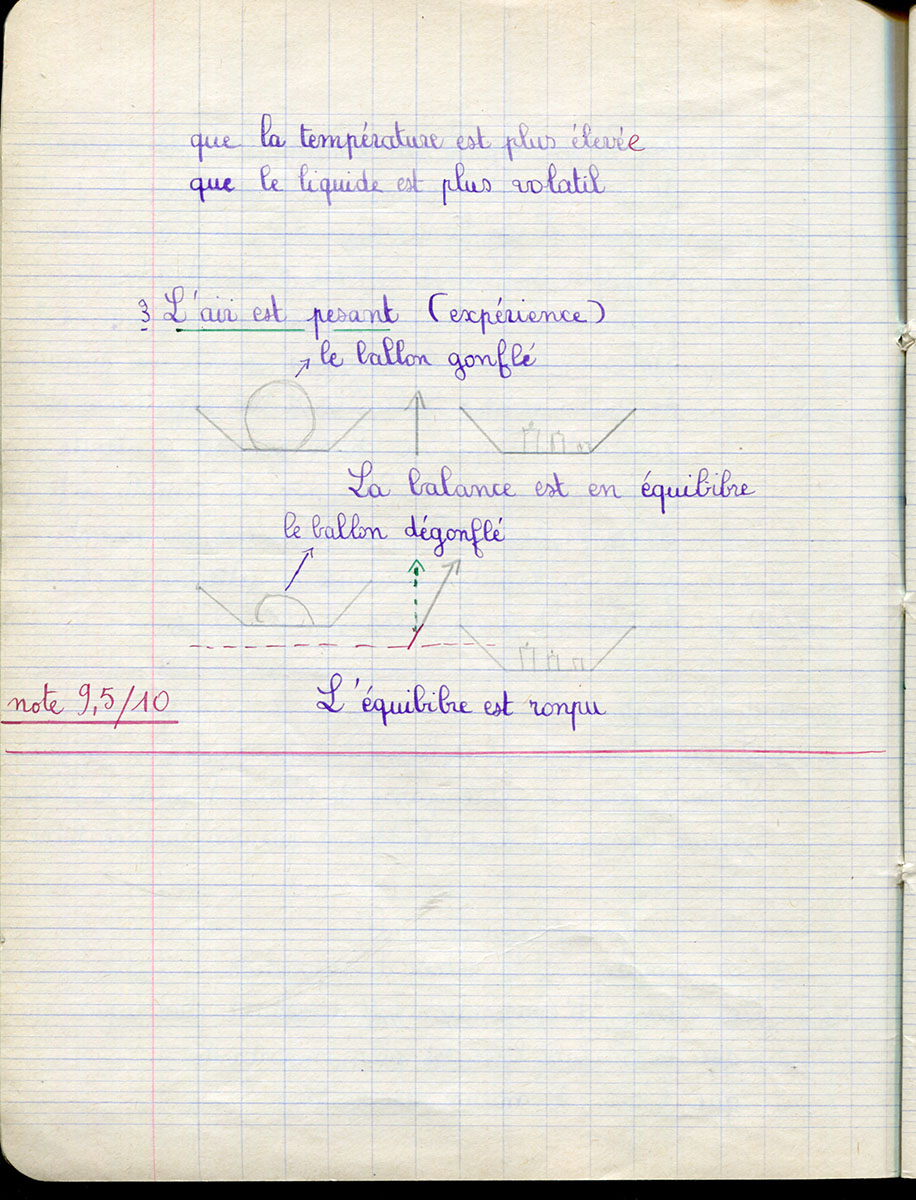 que la température est plus élevée
que le liquide est plus volatil
3 L'air est pesant (expérience)
le ballon gonflé
La balance est en équibibre
le ballon dégonflé
note 9,5/10
L'équibibre est ronpu